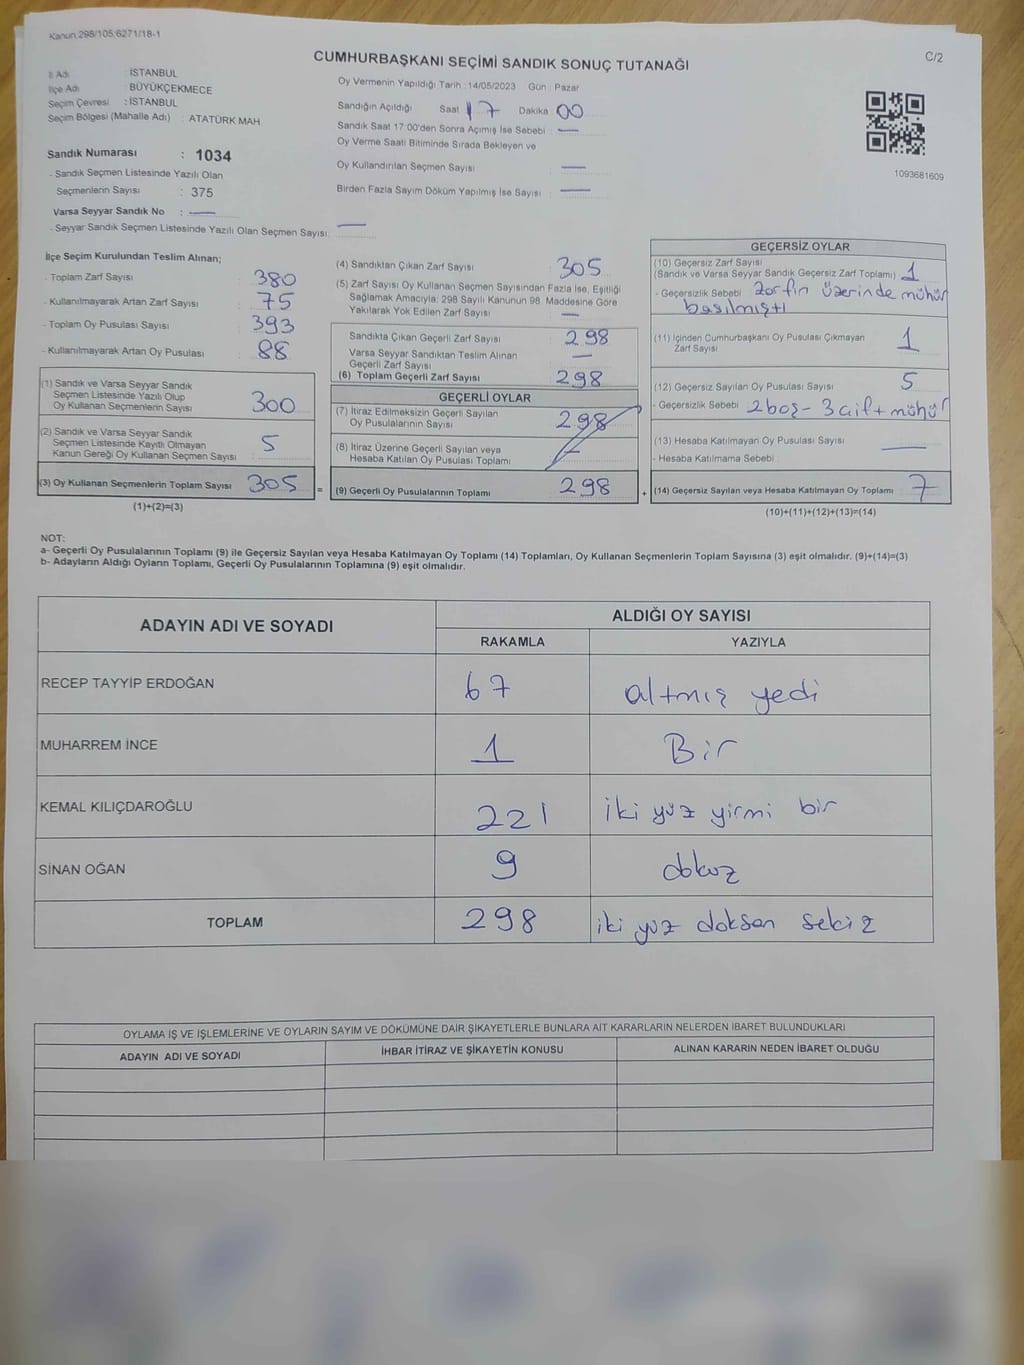 Kanun:298/105;6271/18-1
C/2
CUMHURBAŞKANI SEÇİMİ SANDIK SONUÇ TUTANAĞI
İl Adı : İSTANBUL
İlçe Adı : BÜYÜKÇEKMECE
Seçim Çevresi : İSTANBUL
Seçim Bölgesi (Mahalle Adı) : ATATÜRK MAH.
Sandık Numarası : 1034
- Sandık Seçmen Listesinde Yazılı Olan
Seçmenlerin Sayısı : 375
Varsa Seyyar Sandık No : —
- Seyyar Sandık Seçmen Listesinde Yazılı Olan Seçmen Sayısı: —
Oy Vermenin Yapıldığı Tarih : 14/05/2023 Gün : Pazar
Sandığın Açıldığı Saat 17 Dakika 00
Sandık Saat 17:00'den Sonra Açımış İse Sebebi : —
Oy Verme Saati Bitiminde Sırada Bekleyen ve
Oy Kullandırılan Seçmen Sayısı : —
Birden Fazla Sayım Döküm Yapılmış İse Sayısı : —
1093681609
İlçe Seçim Kurulundan Teslim Alınan;
- Toplam Zarf Sayısı : 380
- Kullanılmayarak Artan Zarf Sayısı : 75
- Toplam Oy Pusulası Sayısı : 393
- Kullanılmayarak Artan Oy Pusulası : 88
(1) Sandık ve Varsa Seyyar Sandık
Seçmen Listesinde Yazılı Olup
Oy Kullanan Seçmenlerin Sayısı : 300
(2) Sandık ve Varsa Seyyar Sandık
Seçmen Listesinde Kayıtlı Olmayan
Kanun Gereği Oy Kullanan Seçmen Sayısı : 5
(3) Oy Kullanan Seçmenlerin Toplam Sayısı : 305 =
(1)+(2)=(3)
(4) Sandıktan Çıkan Zarf Sayısı : 305
(5) Zarf Sayısı Oy Kullanan Seçmen Sayısından Fazla İse, Eşitliği
Sağlamak Amacıyla; 298 Sayılı Kanunun 98. Maddesine Göre
Yakılarak Yok Edilen Zarf Sayısı : —
Sandıkta Çıkan Geçerli Zarf Sayısı : 298
Varsa Seyyar Sandıktan Teslim Alınan
Geçerli Zarf Sayısı : —
(6) Toplam Geçerli Zarf Sayısı : 298
GEÇERLİ OYLAR
(7) İtiraz Edilmeksizin Geçerli Sayılan
Oy Pusulalarının Sayısı : 298
(8) İtiraz Üzerine Geçerli Sayılan veya
Hesaba Katılan Oy Pusulası Toplamı : —
(9) Geçerli Oy Pusulalarının Toplamı : 298 +
GEÇERSİZ OYLAR
(10) Geçersiz Zarf Sayısı
(Sandık ve Varsa Seyyar Sandık Geçersiz Zarf Toplamı) : 1
- Geçersizlik Sebebi : Zarfın üzerinde mühür
basılmıştı
(11) İçinden Cumhurbaşkanı Oy Pusulası Çıkmayan
Zarf Sayısı : 1
(12) Geçersiz Sayılan Oy Pusulası Sayısı : 5
- Geçersizlik Sebebi : 2 boş - 3 çift mühür
(13) Hesaba Katılmayan Oy Pusulası Sayısı : —
- Hesaba Katılmama Sebebi :
(14) Geçersiz Sayılan veya Hesaba Katılmayan Oy Toplamı : 7
(10)+(11)+(12)+(13)=(14)
NOT:
a- Geçerli Oy Pusulalarının Toplamı (9) ile Geçersiz Sayılan veya Hesaba Katılmayan Oy Toplamı (14) Toplamları, Oy Kullanan Seçmenlerin Toplam Sayısına (3) eşit olmalıdır. (9)+(14)=(3)
b- Adayların Aldığı Oyların Toplamı, Geçerli Oy Pusulalarının Toplamına (9) eşit olmalıdır.
ADAYIN ADI VE SOYADI ALDIĞI OY SAYISI
RAKAMLA YAZIYLA
RECEP TAYYİP ERDOĞAN 67 altmış yedi
MUHARREM İNCE 1 Bir
KEMAL KILIÇDAROĞLU 221 iki yüz yirmi bir
SİNAN OĞAN 9 dokuz
TOPLAM 298 iki yüz doksan sekiz
OYLAMA İŞ VE İŞLEMLERİNE VE OYLARIN SAYIM VE DÖKÜMÜNE DAİR ŞİKAYETLERLE BUNLARA AİT KARARLARIN NELERDEN İBARET BULUNDUKLARI
ADAYIN ADI VE SOYADI İHBAR İTİRAZ VE ŞİKAYETİN KONUSU ALINAN KARARIN NEDEN İBARET OLDUĞU